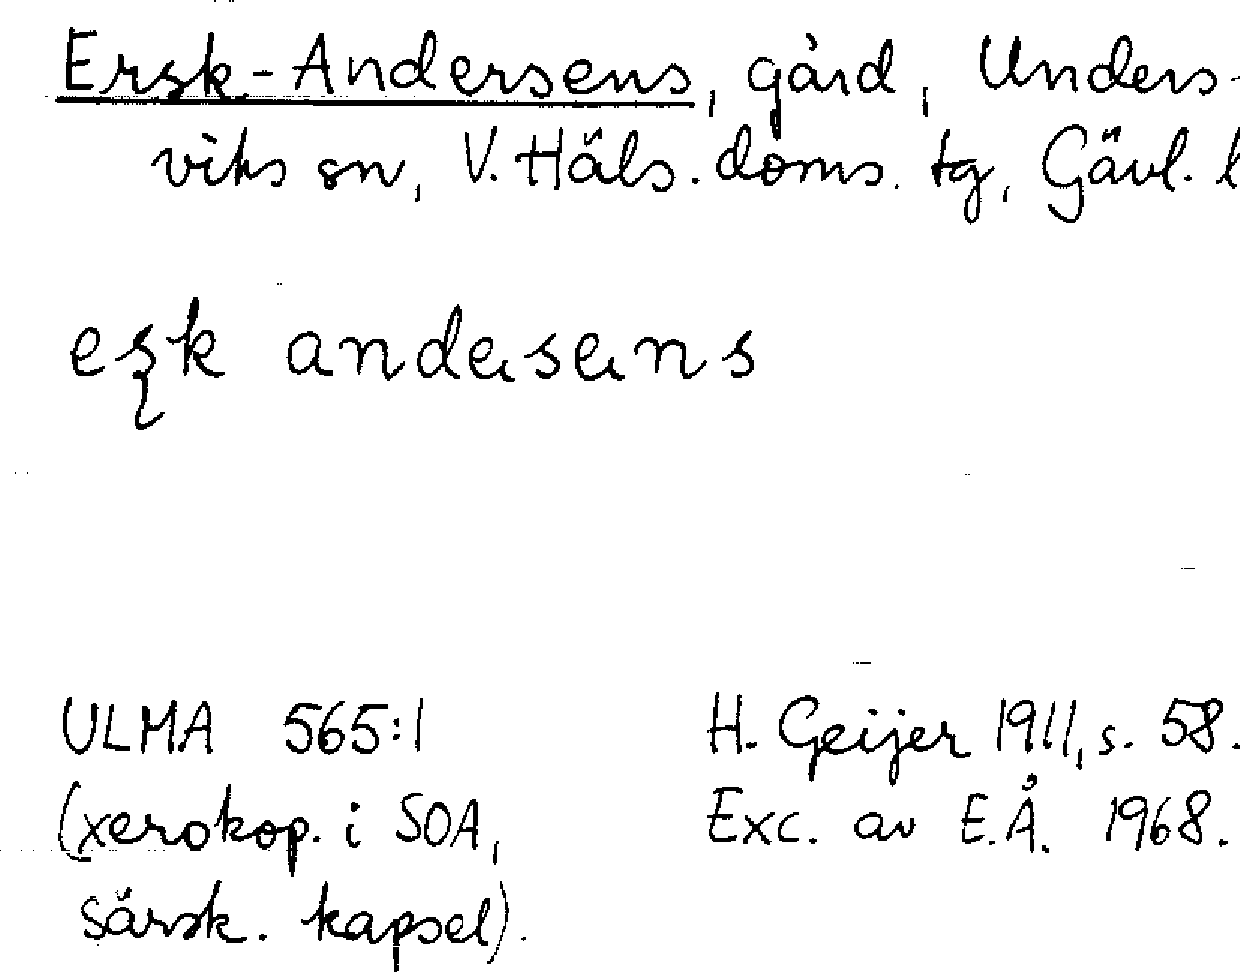 Ersk-Andersens, gård, Unders-
viks sn, V. Häls. doms. tg, Gävl. l
eʂk andɐsɐns
ULMA 565:1
(xerokop. i SOA,
särsk. kapsel).
H. Geijer 1911, s. 58.
Exc. av E.Å. 1968.